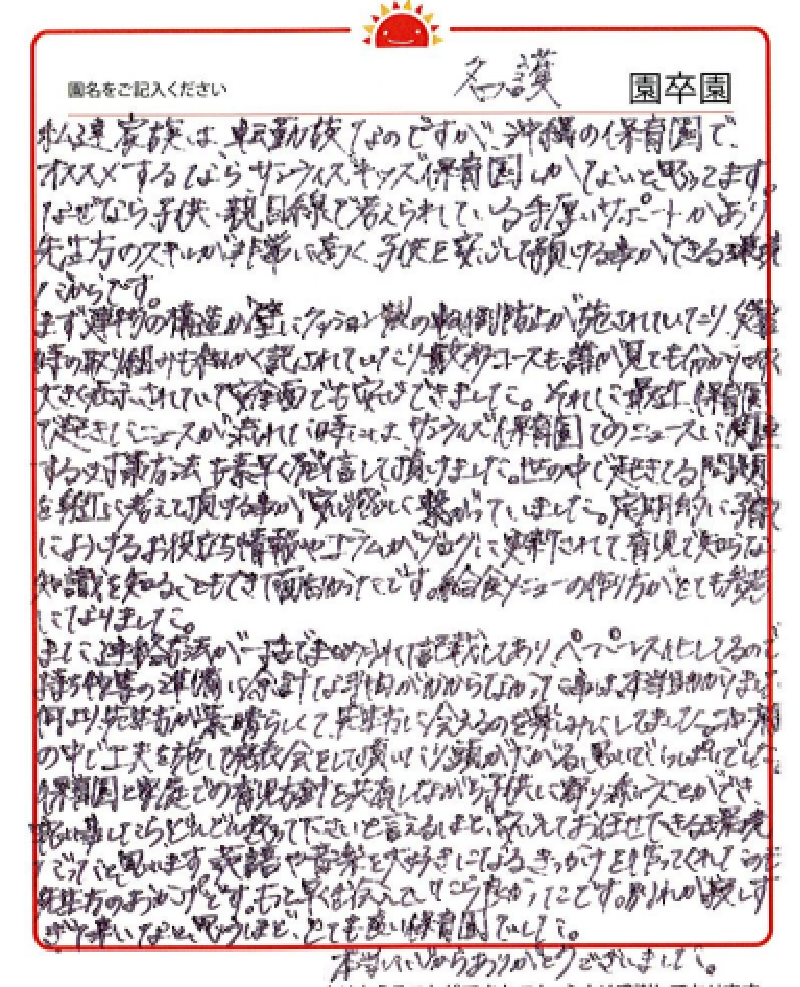 園名をご記入ください 名護 園卒園
私達家族は、転勤族なのですが、沖縄の保育園で、
オススメするならサンウィズキッズ保育園しかないと思ってます。
なぜなら子供、親目線で考えられている手厚いサポートがあり
先生方のスキルが非常に高く、子供を安心して預ける事ができる環境
だからです。
まず建物の構造が壁にクッション製の転倒防止が施されていたり、災害
時の取り組みも細かく記されていたり散歩コースも誰が見ても分かり易く
大きく表示されていて安全面でも安心できました。それに最近保育園
で起きたニュースが流れている時には、サンウィズ保育園でのニュースに関連
する対策方法も素早く発信して頂けました。世の中で起きてる問題
を考えて頂ける事が繋がっていました。定期的に子育て
にようするお役立ち情報やコラムがブログに更新されて、育児で知らない
知識を知ることもできて面白かったです。給食メニューの作り方がとても参考
になりました。
また連絡方法が記載してあり、ペーパーレス化してるので
持ち物等の準備に余計な手間がかからなかった事は、本当助かりました
何より先生方が素晴らしくて、先生方に会えるのを楽しみにしてました。コロナ禍
の中で工夫を施して発表会をして頂いたり頭が下がる思いでいっぱいでした。
保育園と家庭での育児方針を共有しながら子供に寄り添うことができ、
どんどん言って下さいと言えるほど、安心してお任せできる環境
だったと思います。英語や音楽を大好きになるきっかけを作ってくれたのも
先生方のおかげです。もっと早くお会いしたかったです。別れが寂しす
ぎて辛いなと思うほど、とても良い保育園でした。
本当にありがとうございました。